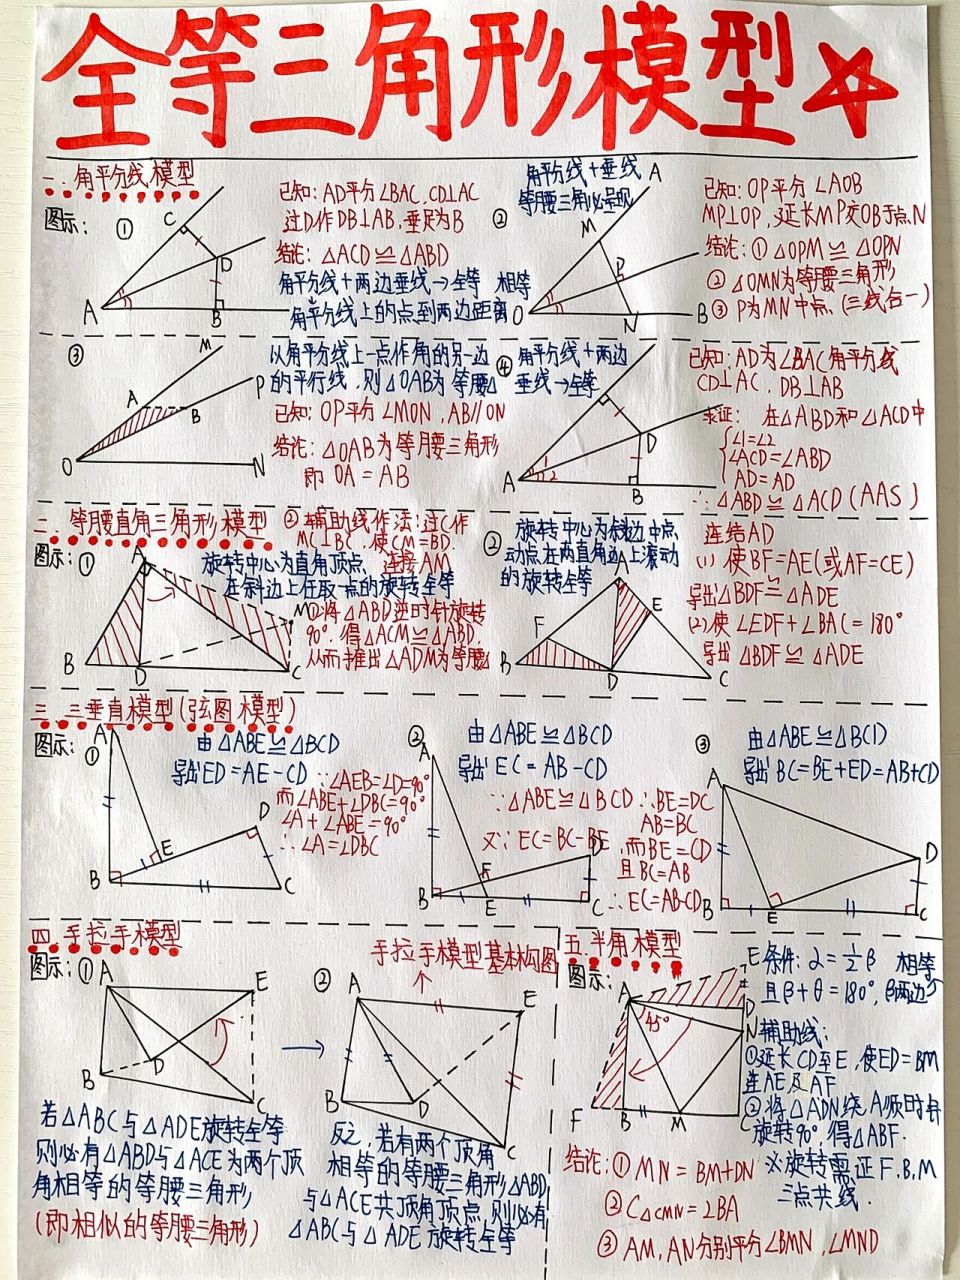 全等三角形模型
一.角平分线模型
图示:①
A
B
C
D
已知:AD平分∠BAC,CD⊥AC
过D作DB⊥AB,垂足为B
结论:△ACD≌△ABD
角平分线+两边垂线→全等 相等
角平分线上的点到两边距离
②
角平分线+垂线
等腰三角必呈现
A
M
P
O
N
B
已知:OP平分∠AOB
MP⊥OP,延长MP交OB于点N
结论:①△OPM≌△OPN
②△OMN为等腰三角形
③P为MN中点(三线合一)
③
M
P
A
B
O
N
以角平分线上一点作角的另一边
的平行线,则△OAB为等腰△
已知:OP平分∠MON,AB∥ON
结论:△OAB为等腰三角形
即OA=AB
④
角平分线+两边
垂线→全等
C
D
A
B
1
2
已知:AD为∠BAC角平分线
CD⊥AC,DB⊥AB
求证:在△ABD和△ACD中
∠1=∠2
∠ACD=∠ABD
AD=AD
∴△ABD≌△ACD(AAS)
二.等腰直角三角形模型
图示:①
A
B
D
C
M
②辅助线作法:过C作
MC⊥BC,使CM=BD.
连接AM
旋转中心为直角顶点,
在斜边上任取一点的旋转全等
①将△ABD逆时针旋转
90°,得△ACM≌△ABD,
从而推出△ADM为等腰△
②
旋转中心为斜边中点,
动点在两直角边上滚动
的旋转全等
A
F
E
B
D
C
连结AD
(1)使BF=AE(或AF=CE)
导出△BDF≌△ADE
(2)使∠EDF+∠BAC=180°
导出△BDF≌△ADE
三.三垂直模型(弦图模型)
图示:①
A
E
D
B
C
由△ABE≌△BCD
导出ED=AE-CD
∵∠AEB=∠D=90°
而∠ABE+∠DBC=90°
∠A+∠ABE=90°
∴∠A=∠DBC
②
A
F
D
B
E
C
由△ABE≌△BCD
导出EC=AB-CD
∵△ABE≌△BCD∴BE=DC
AB=BC
又∵EC=BC-BE,而BE=CD
且BC=AB
∴EC=AB-CD
③
A
D
B
E
C
由△ABE≌△BCD
导出BC=BE+ED=AB+CD
四.手拉手模型
图示:①
A
E
D
B
C
若△ABC与△ADE旋转全等
则必有△ABD与△ACE为两个顶
角相等的等腰三角形
(即相似的等腰三角形)
手拉手模型基本构图
②
A
E
B
D
C
反之,若有两个顶角
相等的等腰三角形△ABD
与△ACE共顶角顶点,则必有
△ABC与△ADE旋转全等
五.半角模型
图示:
E
A
D
45°
N
F
B
M
C
条件:α=½β 相等
且β+θ=180°,β两边
辅助线:
①延长CD至E,使ED=BM
连AE及AF
②将△ADN绕A顺时针
旋转90°,得△ABF.
※旋转需证F.B.M
三点共线.
结论:①MN=BM+DN
②C△CMN=2BA
③AM,AN分别平分∠BMN,∠MND